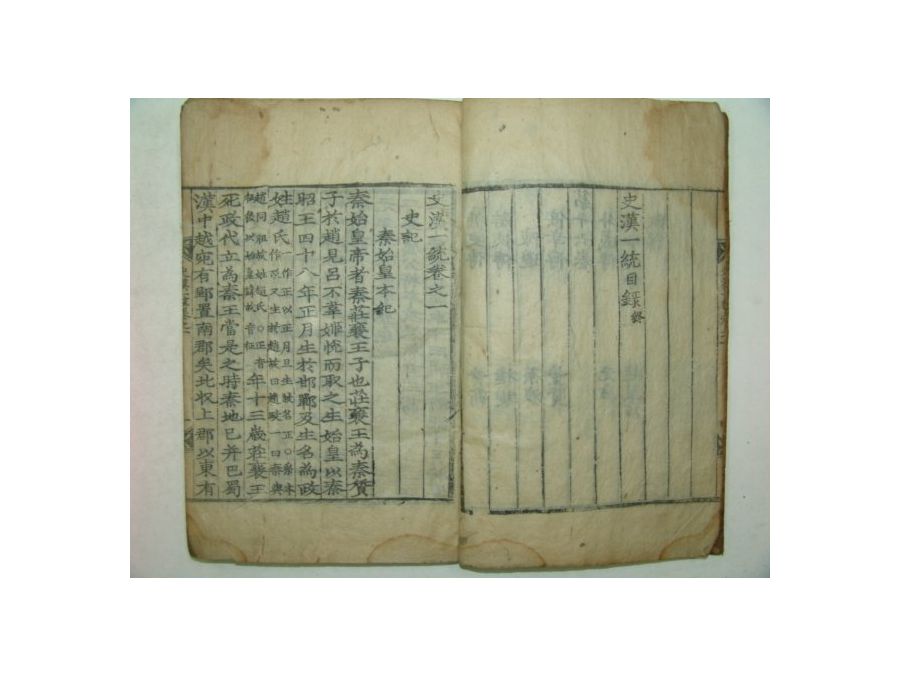 史漢一統目錄終
史漢一統卷之一
史記
秦始皇本紀
秦始皇帝者秦莊襄王子也莊襄王為秦質
子於趙見呂不韋姬悅而取之生始皇以秦
昭王四十八年正月生於邯鄲及生名為政
姓趙氏年十三歲莊襄王
死政代立為秦王當是之時秦地已并巴蜀
漢中越宛有郢置南郡矣北收上郡以東有